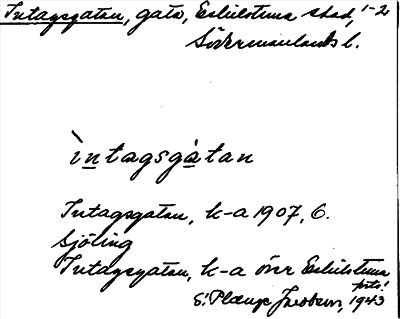 Intagsgatan, gata, Eskilstuna stad, 1-2
Södermanlands l.
ìntagsgàtan
Intagsgatan, k-a 1907, 6.
Sjöling
Intagsgatan, k-a över Eskilstuna
foto!
E. Plænge Jacobson, 1943